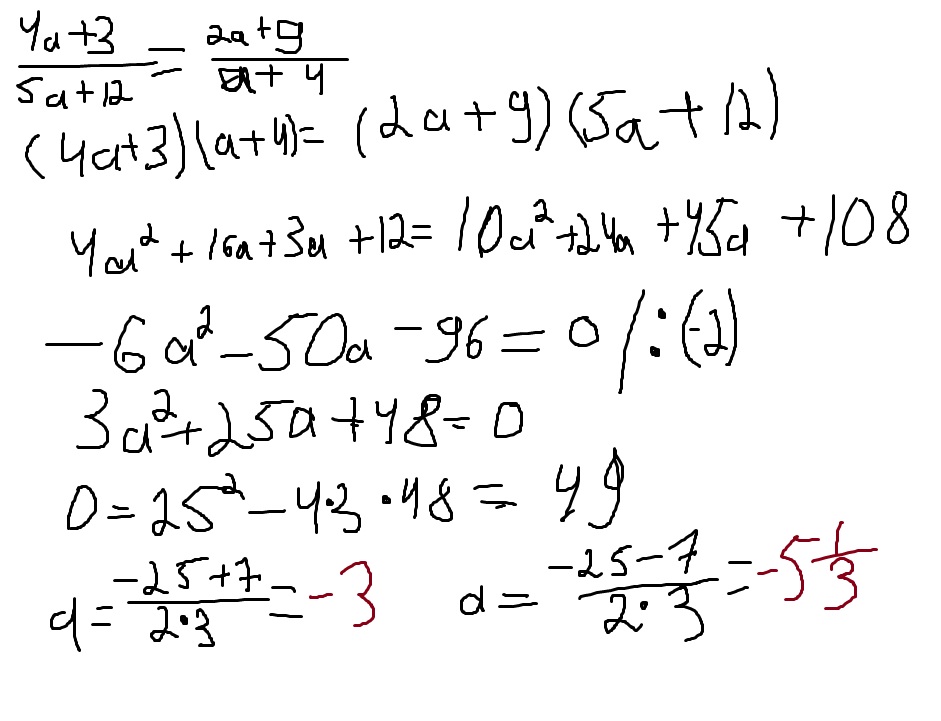 (4a+3)/(5a+12) = (2a+9)/(a+4)
(4a+3)(a+4)= (2a+9)(5a+12)
4a²+16a+3a+12=10a²+24a+45a+108
-6a²-50a-96=0/:(-2)
3a²+25a+48=0
D=25²-4·3·48=49
a=(-25+7)/(2·3)=-3 a=(-25-7)/(2·3)=-5 1/3